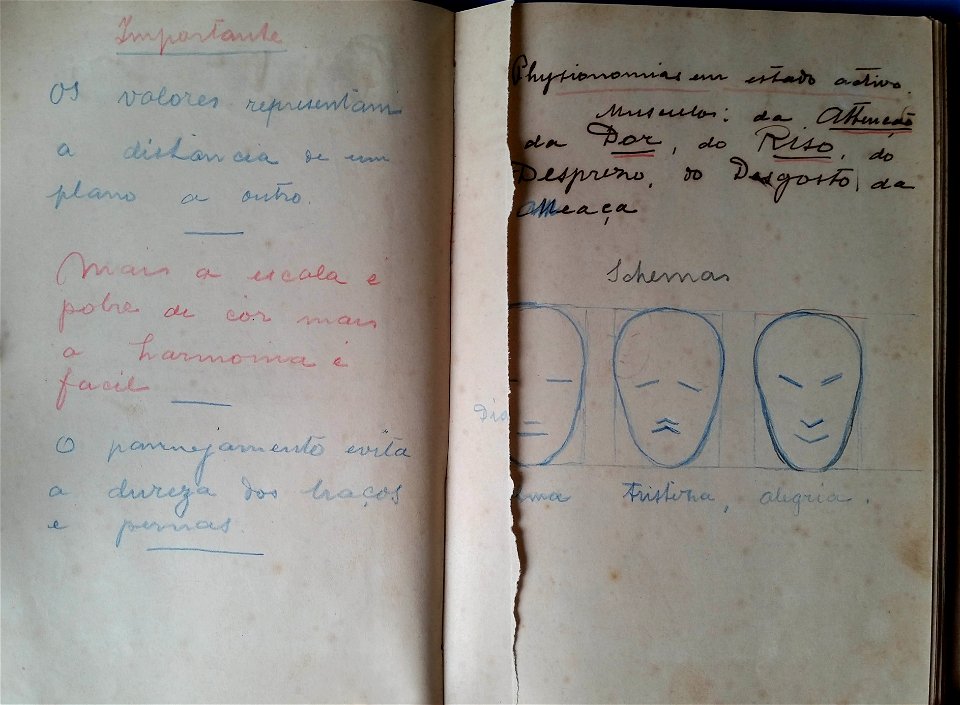 Importante
Os valores representam
a distancia de um
plano a outro.
Mais a escala é
pobre de côr mais
a harmonia é
facil
O pannejamento evita
a dureza dos braços
e pernas.
Physionomias em estado activo.
Musculos: da Attenção
da Dor, do Riso, do
Desprezo, do Desgosto da
Schemas
Dia
tristeza, alegria.